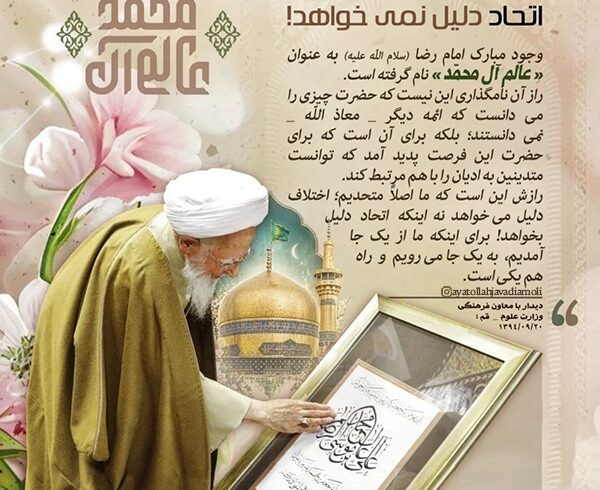 عالم آل محمد
اتحاد دلیل نمی خواهد!
وجود مبارک امام رضا (سلام الله علیه) به عنوان
« عالم آل محمّد » نام گرفته است.
راز آن نامگذاری این نیست که حضرت چیزی را
می دانست که ائمه دیگر _ معاذ الله _
نمی دانستند؛ بلکه برای آن است که برای
حضرت این فرصت پدید آمد که توانست
متدینین به ادیان را با هم مرتبط کند.
رازش این است که ما اصلاً متحدیم؛ اختلاف
دلیل می خواهد نه اینکه اتحاد دلیل
بخواهد! برای اینکه ما از یک جا
آمدیم، به یک جا می رویم و راه
هم یکی است.
@ayatollahjavadiamoli
دیدار با معاون فرهنگی
وزارت علوم _ قم :
۱۳۹۴/۰۹/۲۰